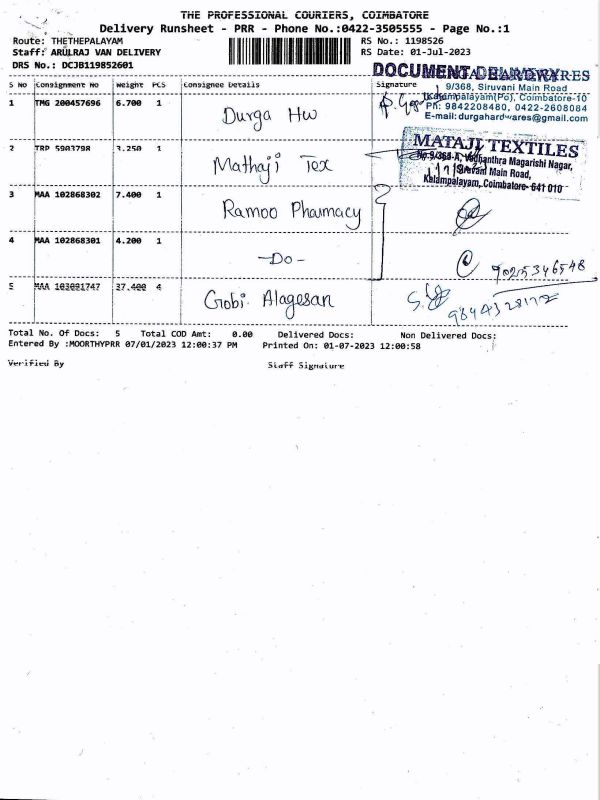 THE PROFESSIONAL COURIERS, COIMBATORE
Delivery Runsheet - PRR - Phone No.:0422-3505555 - Page No.:1
Route: THETHEPALAYAM
RS No.: 1198526
Staff: ARULRAJ VAN DELIVERY
RS Date: 01-Jul-2023
DRS No.: DCJB119852601
DOCUMENT DELIVERY
S No Consignment No Weight PCS Consignee Details Signature
9/368, Siruvani Main Road
Kalampalayam(Po), Coimbatore-10
Ph: 9842208480, 0422-2608084
E-mail: durgahardwares@gmail.com
1 TMG 200457696 6.700 1 Durga Hw
2 TRP 5903798 3.250 1 Mathaji Tex
MATAJI TEXTILES
No.9/368-A, Vedhanthra Magarishi Nagar,
Siruvani Main Road,
Kalampalayam, Coimbatore- 641 010
3 MAA 102868302 7.400 1 Ramoo Phaumacy
4 MAA 102868301 4.200 1 -Do-
9025346548
5 MAA 103091747 37.400 4 Gobi Alagesan
Total No. Of Docs: 5 Total COD Amt: 0.00 Delivered Docs: Non Delivered Docs:
Entered By :MOORTHYPRR 07/01/2023 12:00:37 PM Printed On: 01-07-2023 12:00:58
Verified By Staff Signature